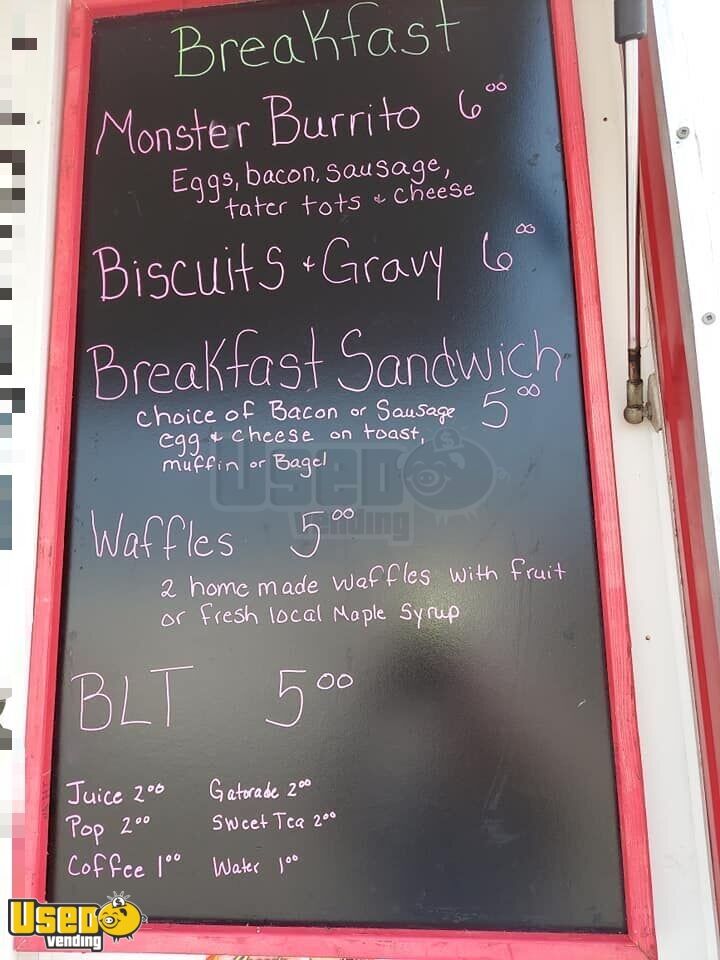 Breakfast
Monster Burrito 6⁰⁰
Eggs, bacon, sausage,
tater tots & cheese
Biscuits & Gravy 6⁰⁰
Breakfast Sandwich
choice of Bacon or Sausage 5⁰⁰
egg & cheese on toast,
muffin or Bagel
USED
vending
Waffles 5⁰⁰
2 home made waffles with fruit
or fresh local Maple Syrup
BLT 5⁰⁰
Juice 2⁰⁰ Gatorade 2⁰⁰
Pop 2⁰⁰ Sweet Tea 2⁰⁰
Coffee 1⁰⁰ Water 1⁰⁰
USED
vending